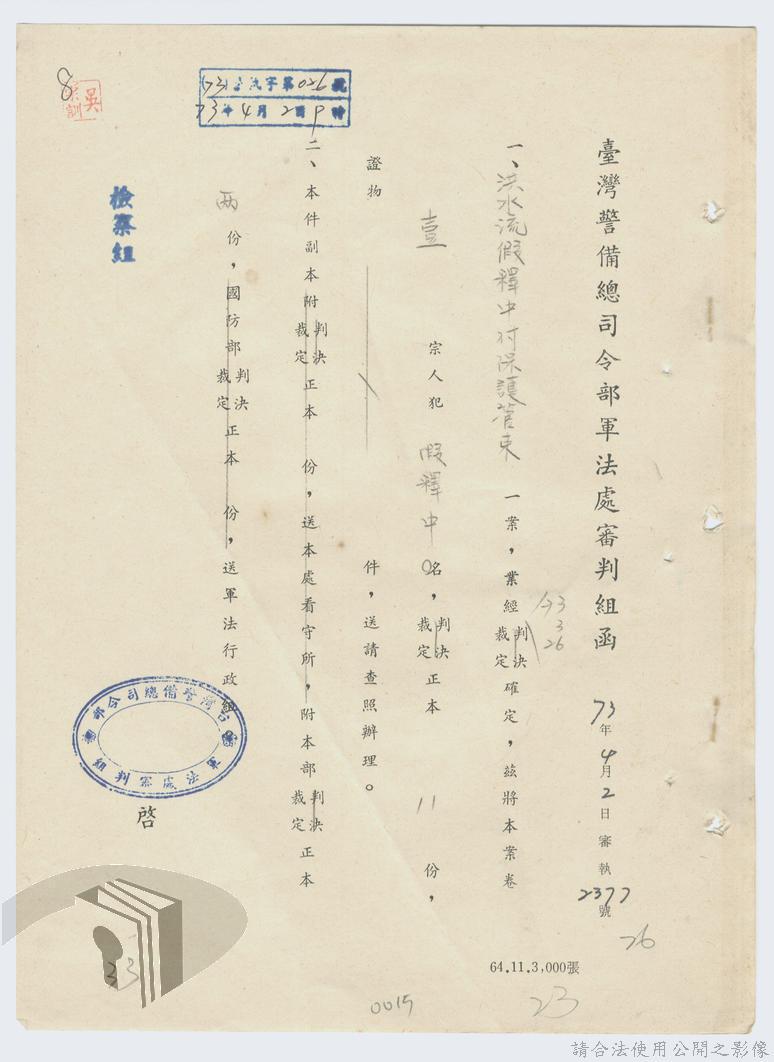 臺灣警備總司令部軍法處審判組函
73年4月2日審執2377號
一、洪水流假釋中付保護管束一案，業經判決裁定確定，茲將本案卷
73
3
26
壹宗人犯假釋中0名，判決裁定正本11份，
證物 件，送請查照辦理。
二、本件副本附判決裁定正本 份，送本處看守所，附本部判決裁定正本
兩份，國防部判決裁定正本 份，送軍法行政組。
檢察組
台灣警備總司令部
軍法處審判組
啓
(73)字第026號
73年4月2日9時
8
吳
訓
64.11.3,000張
26
23
0015
33
請合法使用公開之影像